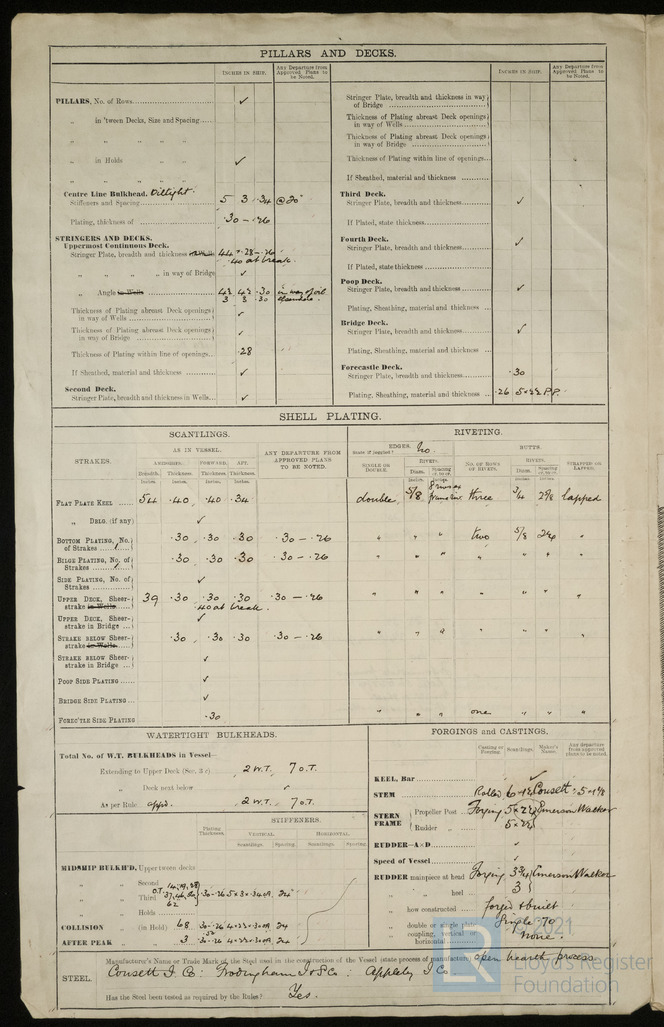 PILLARS AND DECKS.
INCHES IN SHIP.
Any Departure from Approved Plans to be Noted.
INCHES IN SHIP.
Any Departure from Approved Plans to be Noted.
PILLARS, No. of Rows ✓
„ in 'tween Decks, Size and Spacing
„ „ „ „ „
„ in Holds ✓
„ „ „ „
Centre Line Bulkhead. Oiltight.
Stiffeners and Spacing 5 3 .34 @ 20"
Plating, thickness of .30 - .26
STRINGERS AND DECKS.
Uppermost Continuous Deck.
Stringer Plate, breadth and thickness 44 × .28 - .26
.40 at break.
„ „ „ „ in way of Bridge ✓
„ Angle in Wells 4½ 4½ .30 in way of oil
3 3 .30 elsewhere.
Thickness of Plating abreast Deck openings in way of Wells ✓
Thickness of Plating abreast Deck openings in way of Bridge ✓
Thickness of Plating within line of openings .28
If Sheathed, material and thickness ✓
Second Deck.
Stringer Plate, breadth and thickness in Wells ✓
Stringer Plate, breadth and thickness in way of Bridge
Thickness of Plating abreast Deck openings in way of Wells
Thickness of Plating abreast Deck openings in way of Bridge
Thickness of Plating within line of openings
If Sheathed, material and thickness
Third Deck.
Stringer Plate, breadth and thickness ✓
If Plated, state thickness
Fourth Deck.
Stringer Plate, breadth and thickness ✓
If Plated, state thickness
Poop Deck.
Stringer Plate, breadth and thickness ✓
Plating, Sheathing, material and thickness
Bridge Deck.
Stringer Plate, breadth and thickness ✓
Plating, Sheathing, material and thickness
Forecastle Deck.
Stringer Plate, breadth and thickness .30
Plating, Sheathing, material and thickness .26 5×2½ P.P.
SHELL PLATING.
SCANTLINGS.
RIVETING.
STRAKES.
AS IN VESSEL.
ANY DEPARTURE FROM APPROVED PLANS TO BE NOTED.
EDGES. No.
BUTTS.
AMIDSHIPS. FORWARD. AFT.
Breadth. Thickness. Thickness. Thickness.
SINGLE OR DOUBLE.
RIVETS.
NO. OF ROWS OF RIVETS.
RIVETS.
STRAPPED OR LAPPED.
FLAT PLATE KEEL 54 .40 .40 .34 double 5/8 three 3/4 2⅝ lapped
„ DBLG. (if any) ✓
BOTTOM PLATING, No. of Strakes .30 .30 .30 .30 - .26 „ „ „ two 5/8
BILGE PLATING, No. of Strakes .30 .30 .30 .30 - .26 „ „ „ „ „ „
SIDE PLATING, No. of Strakes ✓
UPPER DECK, Sheerstrake in Wells 39 .30 .30 .30 .30 - .26 „ „ „ „ „ „ „
.40 at break.
UPPER DECK, Sheerstrake in Bridge ✓
STRAKE BELOW Sheerstrake in Wells .30 .30 .30 .30 - .26 „ „ „ „ „ „ „
STRAKE BELOW Sheerstrake in Bridge ✓
POOP SIDE PLATING ✓
BRIDGE SIDE PLATING ✓
FOREC'TLE SIDE PLATING .30 „ „ „ one „ „ „
WATERTIGHT BULKHEADS.
Total No. of W.T. BULKHEADS in Vessel—
Extending to Upper Deck (Sec. 3 c) 2 W.T. 7 O.T.
„ Deck next below
As per Rule appd. 2 W.T. 7 O.T.
Plating Thickness.
STIFFENERS.
VERTICAL.
HORIZONTAL.
Scantlings. Spacing. Scantlings. Spacing.
MIDSHIP BULKH'D, Upper tween decks
„ „ Second „
„ „ Third „
„ „ Holds
COLLISION „ (in Hold) 68
AFTER PEAK „ „ 3
FORGINGS and CASTINGS.
Casting or Forging.
Scantlings.
Maker's Name.
Any departure from approved plans to be noted.
KEEL, Bar ✓
STEM Rolled 6 × 1½ Consett 5 × 1⅛
STERN FRAME
Propeller Post Forging 5 × 2½ Emerson Walker
Rudder „ 5 × 2½
RUDDER—A×D ✓
Speed of Vessel ✓
RUDDER mainpiece at head Forging 3¾ Emerson Walker
„ „ heel 3
„ how constructed forged & built
„ double or single plate Single .70
„ coupling, vertical or horizontal None.
STEEL.
Manufacturer's Name or Trade Mark of the Steel used in the construction of the Vessel (state process of manufacture) open hearth process
Consett I. Co: Frodingham I & S Co: Appleby I Co.
Has the Steel been tested as required by the Rules? Yes.
LR
© 2021
Lloyd's Register
Foundation